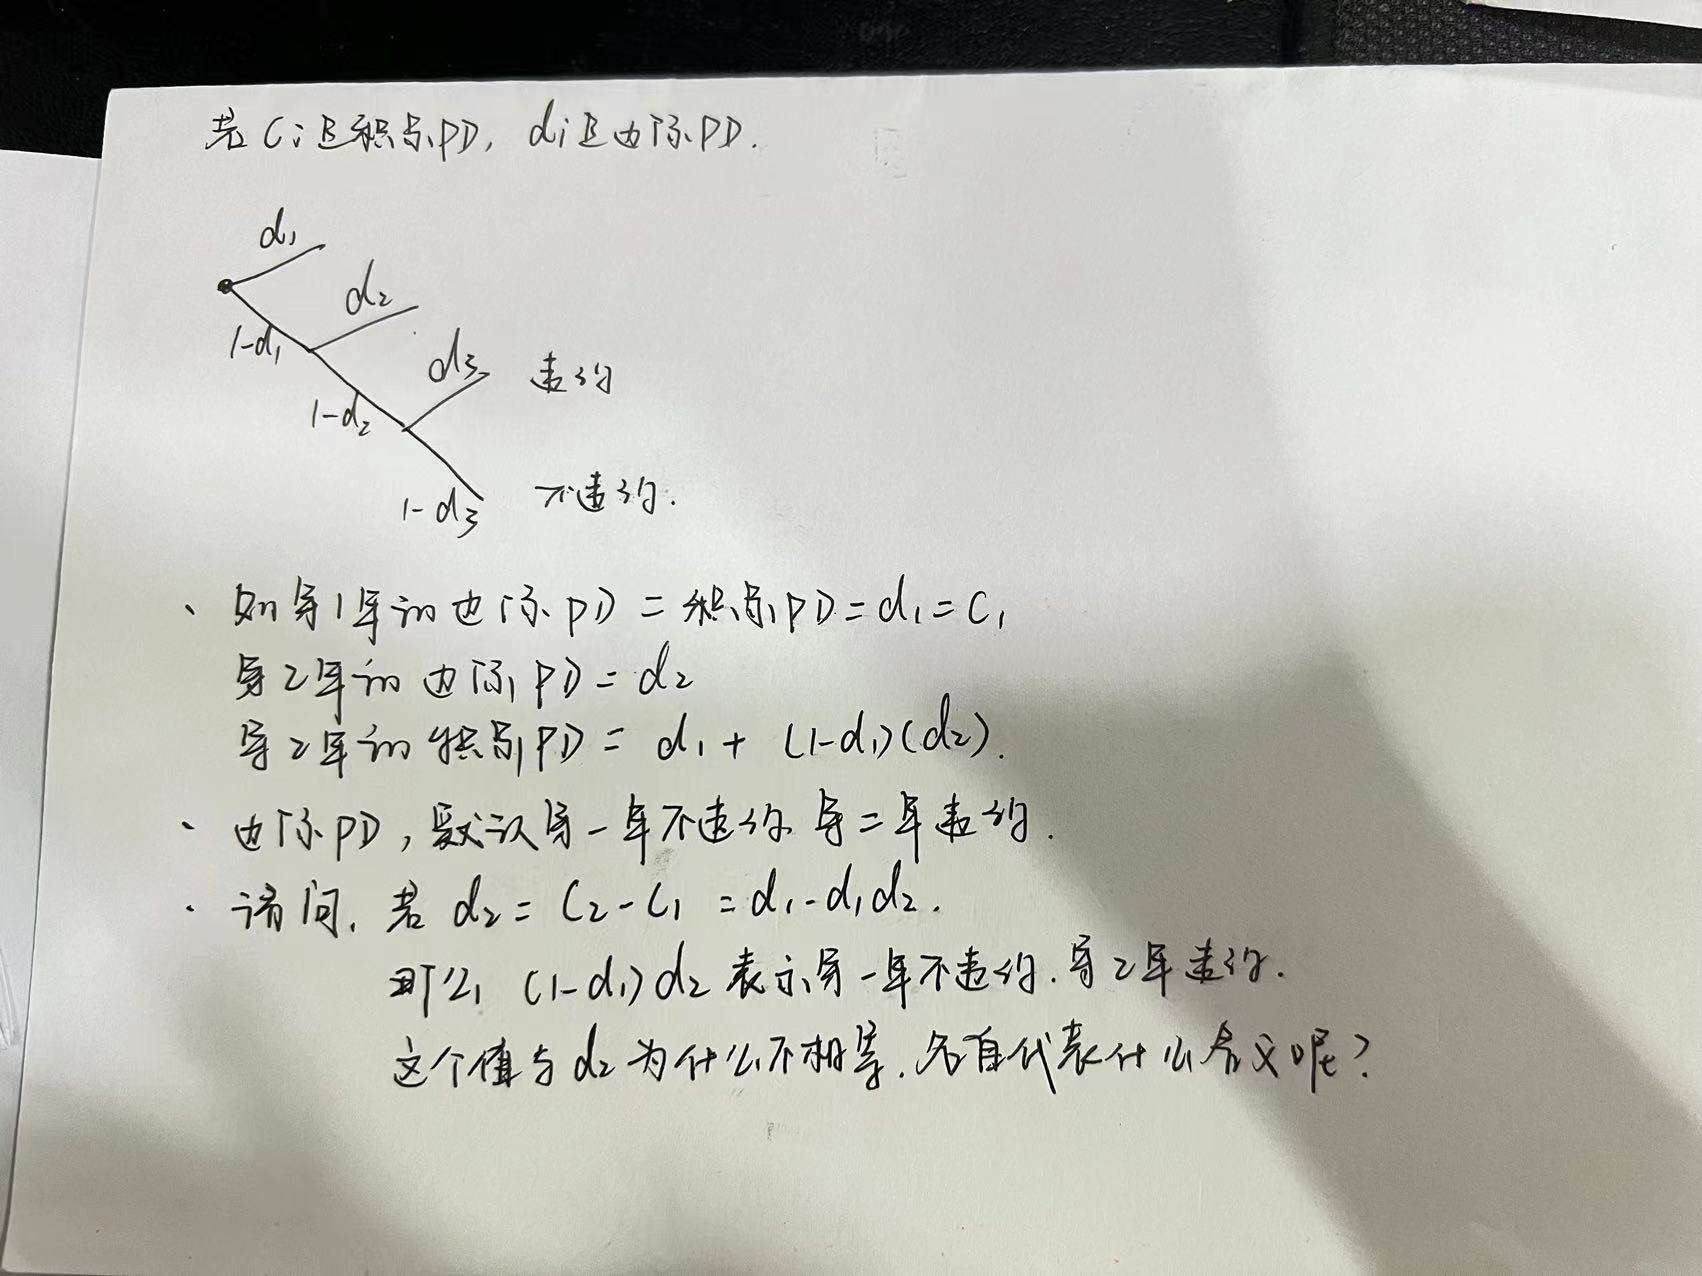 若 Ci 是积累PD, di是边际PD.
d1
d2
1-d1
d3 违约
1-d2
1-d3 不违约.
、如第1年的边际PD = 积累PD = d1 = C1
第2年的边际PD = d2
第2年的积累PD = d1 + (1-d1)(d2).
、边际PD, 默认第一年不违约 第二年违约.
· 请问. 若 d2 = C2 - C1 = d1 - d1d2.
那么 (1-d1)d2 表示第一年不违约. 第2年违约.
这个值与d2为什么不相等. 各自代表什么含义呢?